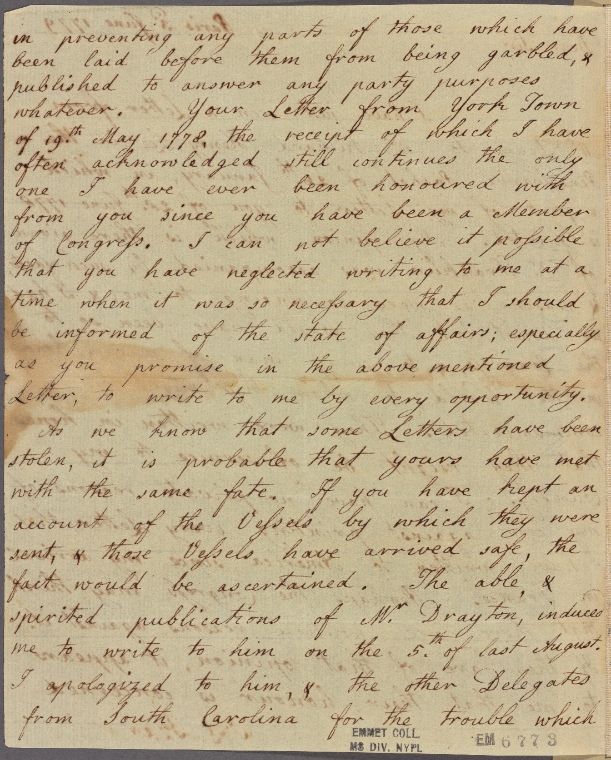 in preventing any parts of those which have
been laid before them from being garbled, &
published to answer any party purposes
whatever. Your Letter from York Town
of 19.th May 1778, the receipt of which I have
often acknowledged still continues the only
one I have ever been honoured with
from you since you have been a Member
of Congress. I can not believe it possible
that you have neglected writing to me at a
time when it was so necessary that I should
be informed of the state of affairs; especially
as you promise in the above mentioned
Letter, to write to me by every opportunity.
As we know that some Letters have been
stolen, it is probable that yours have met
with the same fate. If you have kept an
account of the Vessels by which they were
sent, & those Vessels have arrived safe, the
fact would be ascertained. The able, &
spirited publications of Mr Drayton, induced
me to write to him on the 5.th of last August.
I apologized to him, & the other Delegates
from South Carolina for the trouble which
EMMET COLL.
MS DIV. NYPL
EM 6773